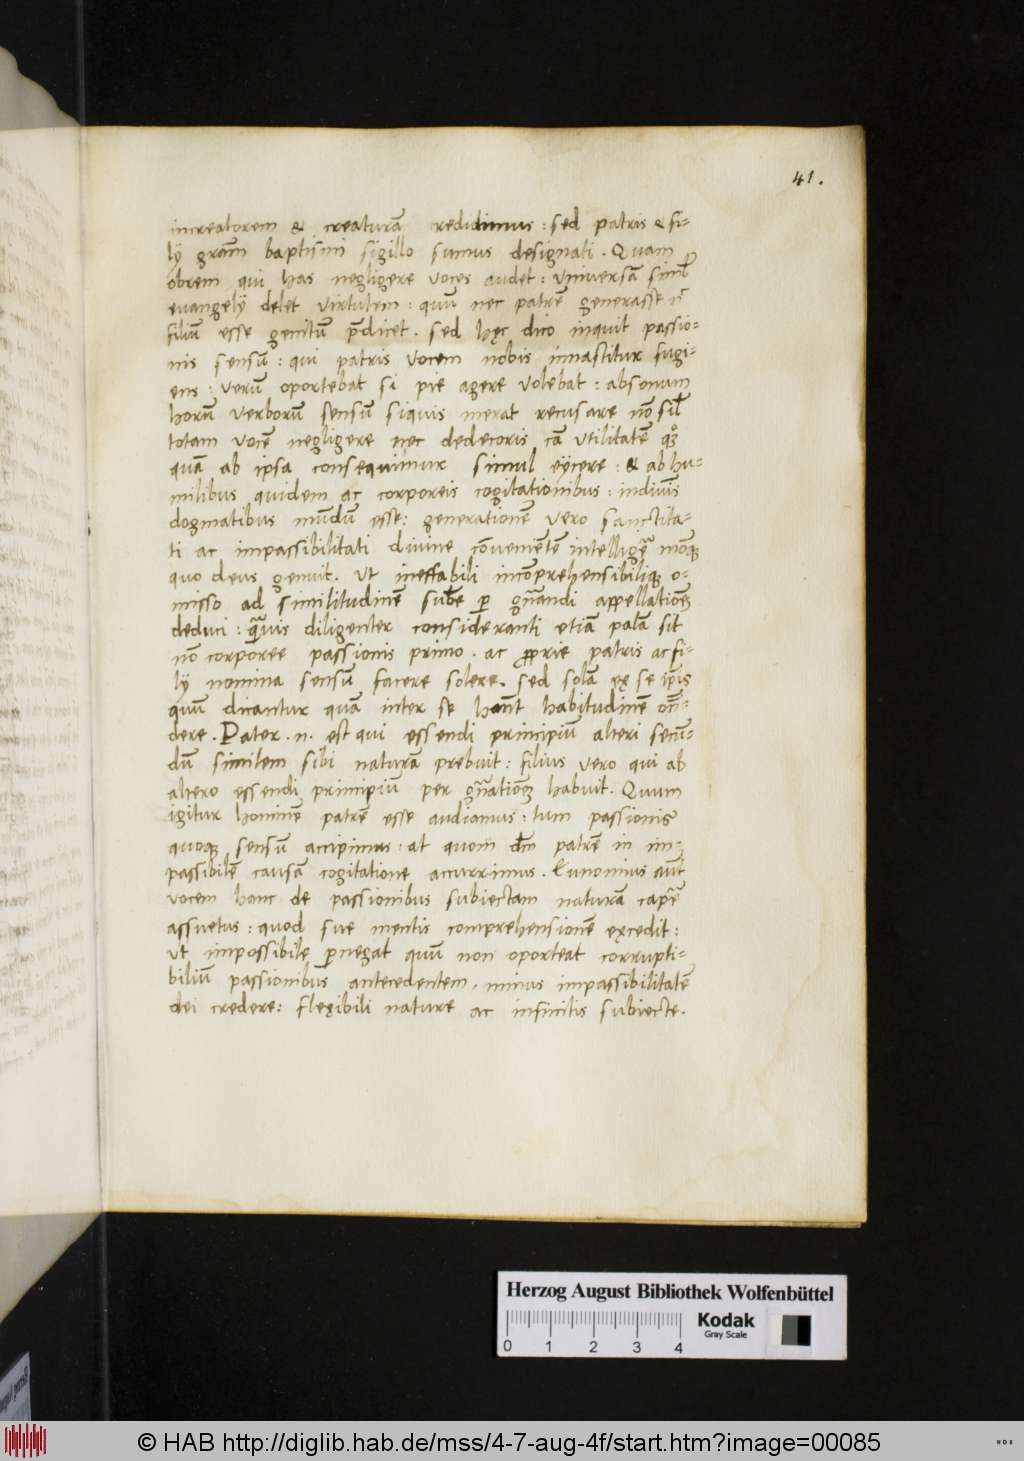 41.
increatorem & creaturā redidimus : sed patris & fi-
lÿ gr̄am baptismi sigillo sumus designati . Quam
obrem qui has negligere voces audet : vniversā simul
evangelÿ delet virtutem : quū nec patrē generasse n
filiū esse genitū p̄dicet . sed hęc dico inquit passio-
nis sensū : qui patris vocem nobis innascitur fugi-
ens : verū oportebat si pie agere volebat : absonum
horū verborū sensū siquis inerat recusare nō sil̄
totam vocē negligere nec dedecoris cā vtilitatē
quā ab ipsa consequimur simul eÿcere : & ab hu-
milibus quidem ac corporeis cogitationibus : indiuis
dogmatibus mūdū esse : generationē vero sanctita-
ti ac impassibilitati divine cōvenientē
quo deus genuit . vt ineffabili incōprehensibilique o-
misso ad similitudinē p gn̄andi appellationē
deduci : quāuis diligenter consideranti etiā palā sit
nō corporee passionis primo . ac proprie patris ac fi-
lÿ nomina sensū facere solere . sed solā eę se ip̄is
quū dicantur quā inter se han̄t habitudinē on̄-
dere . Pater . n . est qui essendi principiū alteri secū-
dū similem sibi naturā prebuit : filius vero qui ab
altero essendi principiū per gn̄ationē habuit . Quum
igitur hominē patrē esse audiamus : tum passionis
quoque sensū accipimus : at quom dm̄ patrē in im-
passibilē causā cogitatione accurrimus . Eunomius aūt
vocem hanc de passionibus subiectam naturā cap̄e
assuetus : quod sue mentis comprehensionē ęxcedit :
vt impossibile p̄negat quū non oporteat corrupti-
biliū passionibus antecedentem , minus impassibilitatē
dei credere : flęxibili nature ac infinitis subiecte .
Herzog August Bibliothek Wolfenbüttel
0 1 2 3 4
Kodak
Gray Scale
© HAB http://diglib.hab.de/mss/4-7-aug-4f/start.htm?image=00085